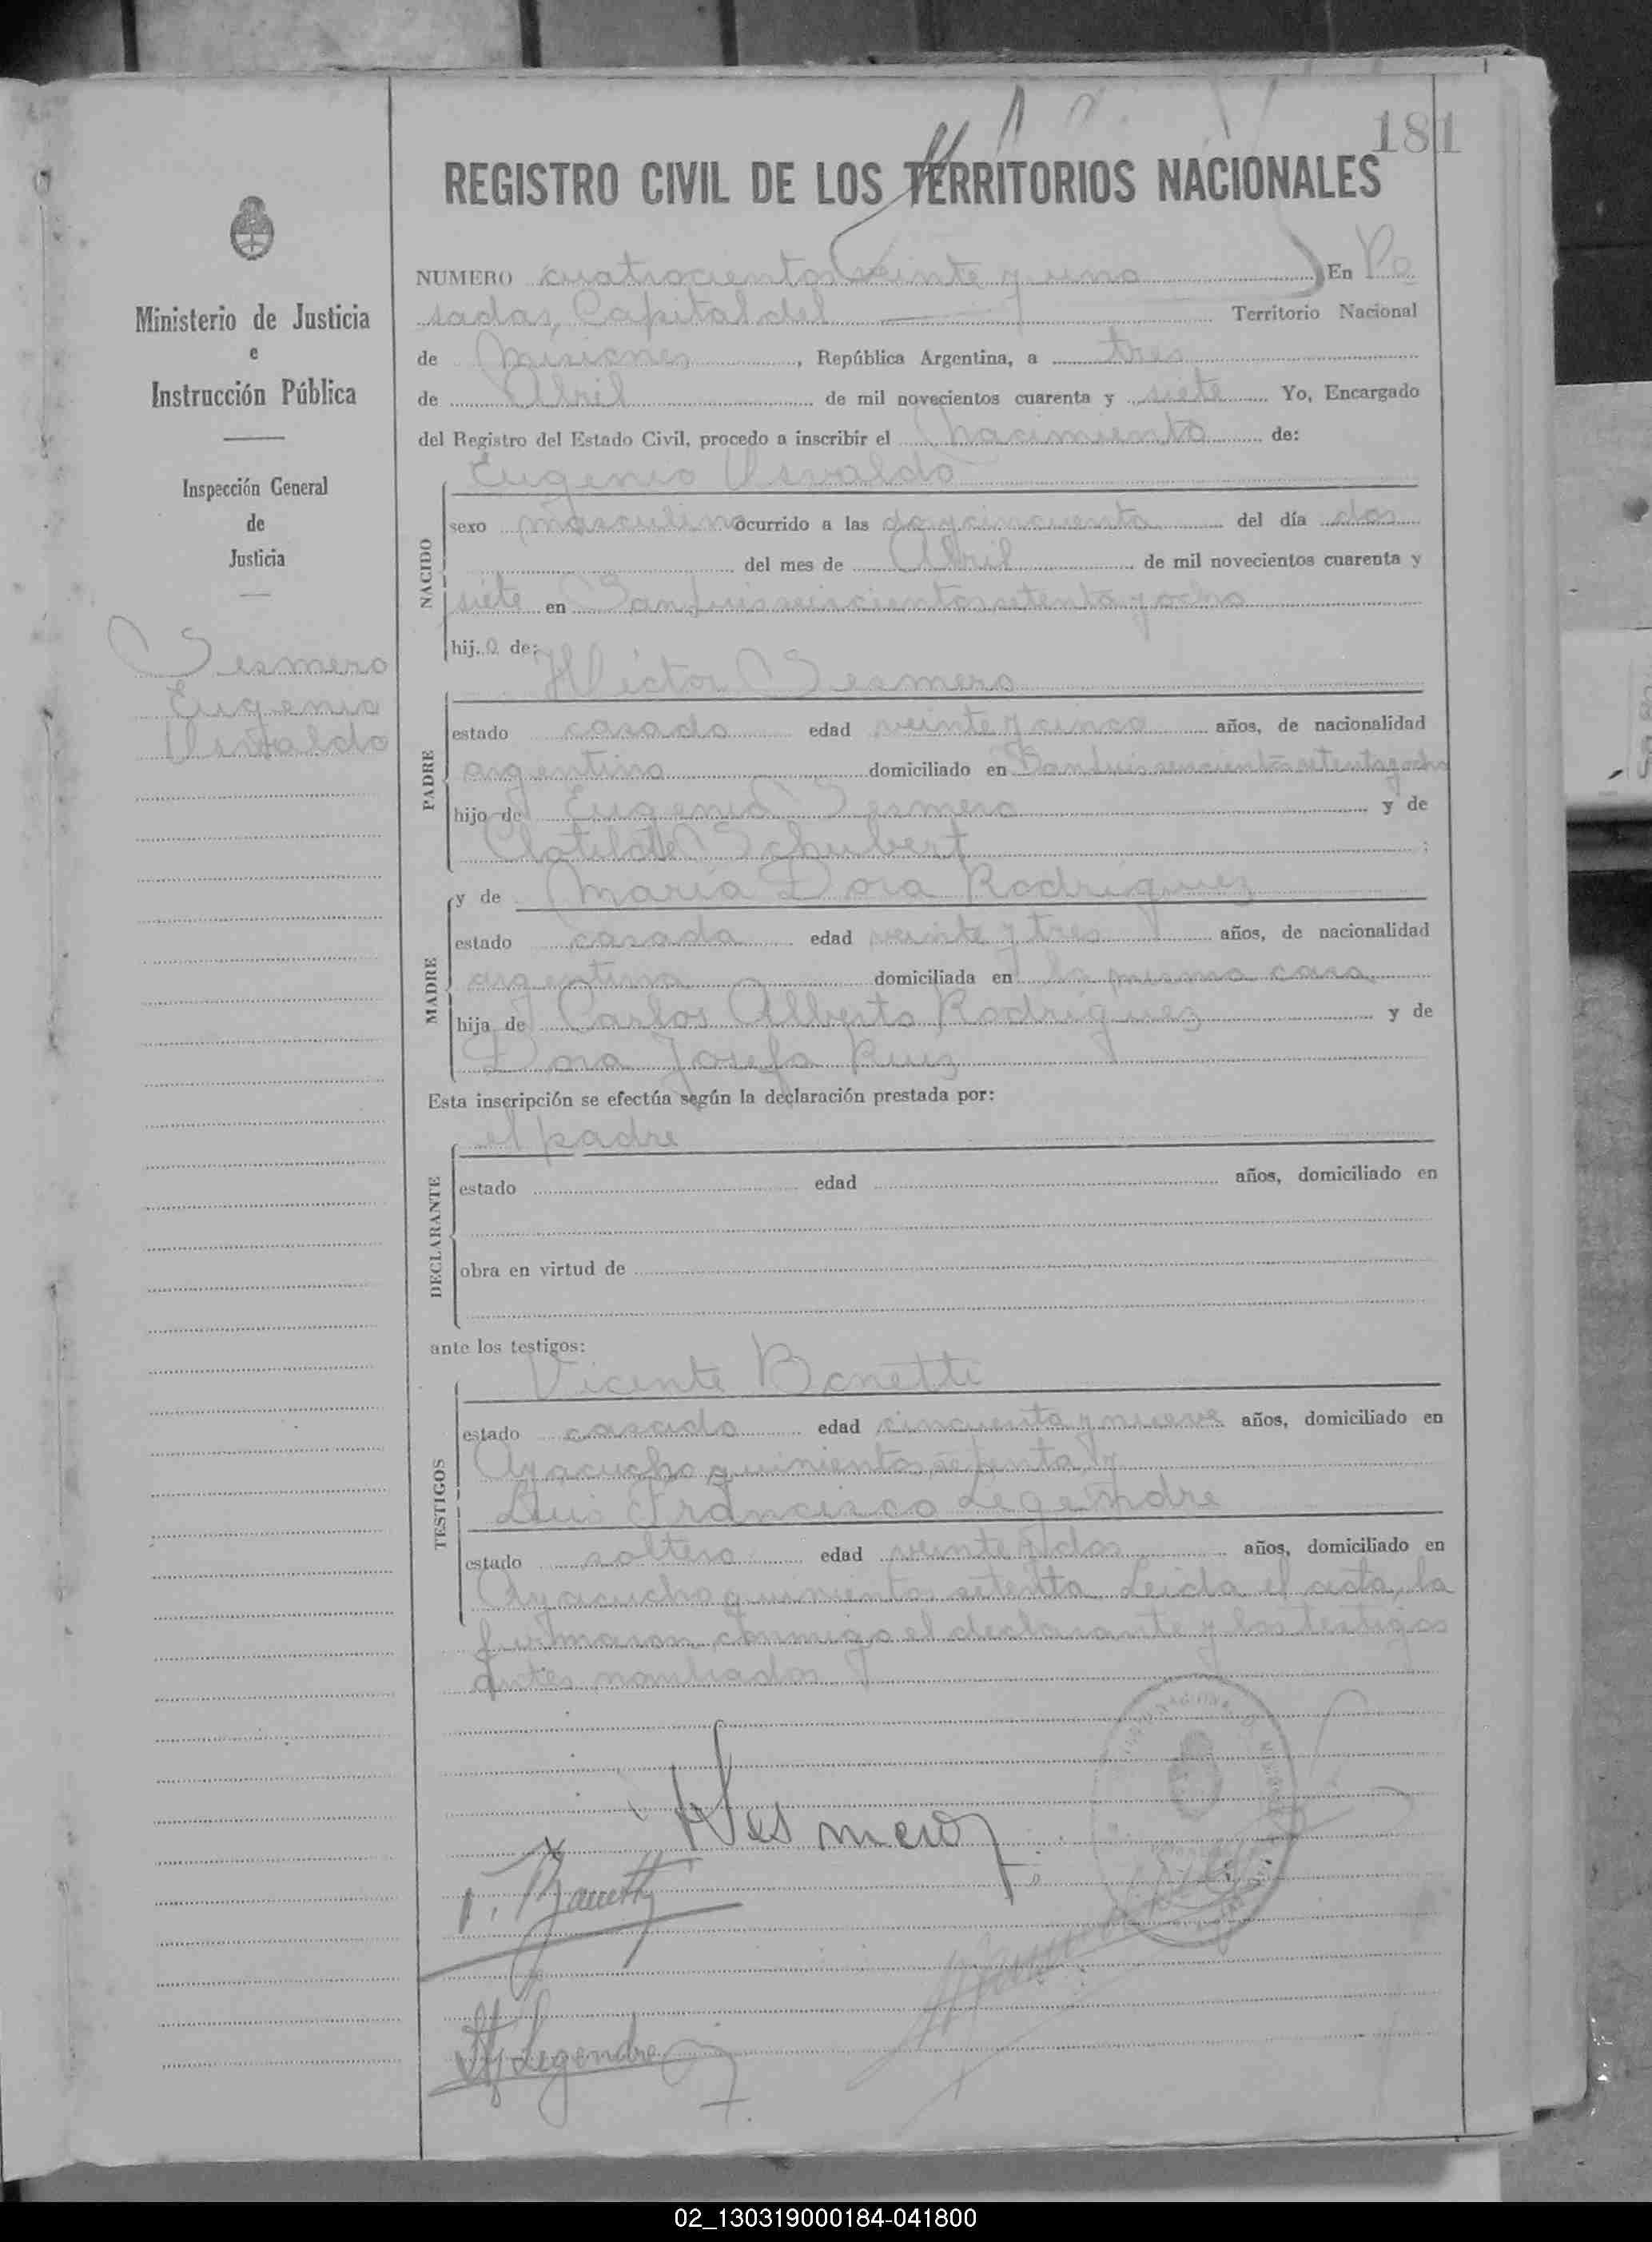 181
REGISTRO CIVIL DE LOS TERRITORIOS NACIONALES
Ministerio de Justicia
e
Instrucción Pública
Inspección General
de
Justicia
Sesmero
Eugenio
Osvaldo
NUMERO cuatrocientos veinte y uno En Po
sadas, Capital del Territorio Nacional
de Misiones, República Argentina, a tres
de Abril de mil novecientos cuarenta y siete Yo, Encargado
del Registro del Estado Civil, procedo a inscribir el nacimiento de:
Eugenio Osvaldo
NACIDO
sexo masculino ocurrido a las dos y cincuenta del día dos
del mes de Abril de mil novecientos cuarenta y
siete en San Luis seiscientos setenta y ocho
hijo de:
Héctor Sesmero
PADRE
estado casado edad veinte y cinco años, de nacionalidad
argentino domiciliado en San Luis seiscientos setenta y ocho
hijo de Eugenio Sesmero y de
Clotilde Schubert ;
MADRE
y de María Dora Rodriguez
estado casada edad veinte y tres años, de nacionalidad
argentina domiciliada en la misma casa
hija de Carlos Alberto Rodriguez y de
Dora Josefa Ruiz
Esta inscripción se efectúa según la declaración prestada por:
el padre
DECLARANTE
estado edad años, domiciliado en
obra en virtud de
ante los testigos:
Vicente Banetti
TESTIGOS
estado casado edad cincuenta y nueve años, domiciliado en
Ayacucho quinientos setenta y
Luis Francisco Legendre
estado soltero edad veinte y dos años, domiciliado en
Ayacucho quinientos setenta. Leida el acta, la
firmaron conmigo el declarante y los testigos
antes nombrados
HSesmero
V. Banetti
Legendre
02_130319000184-041800